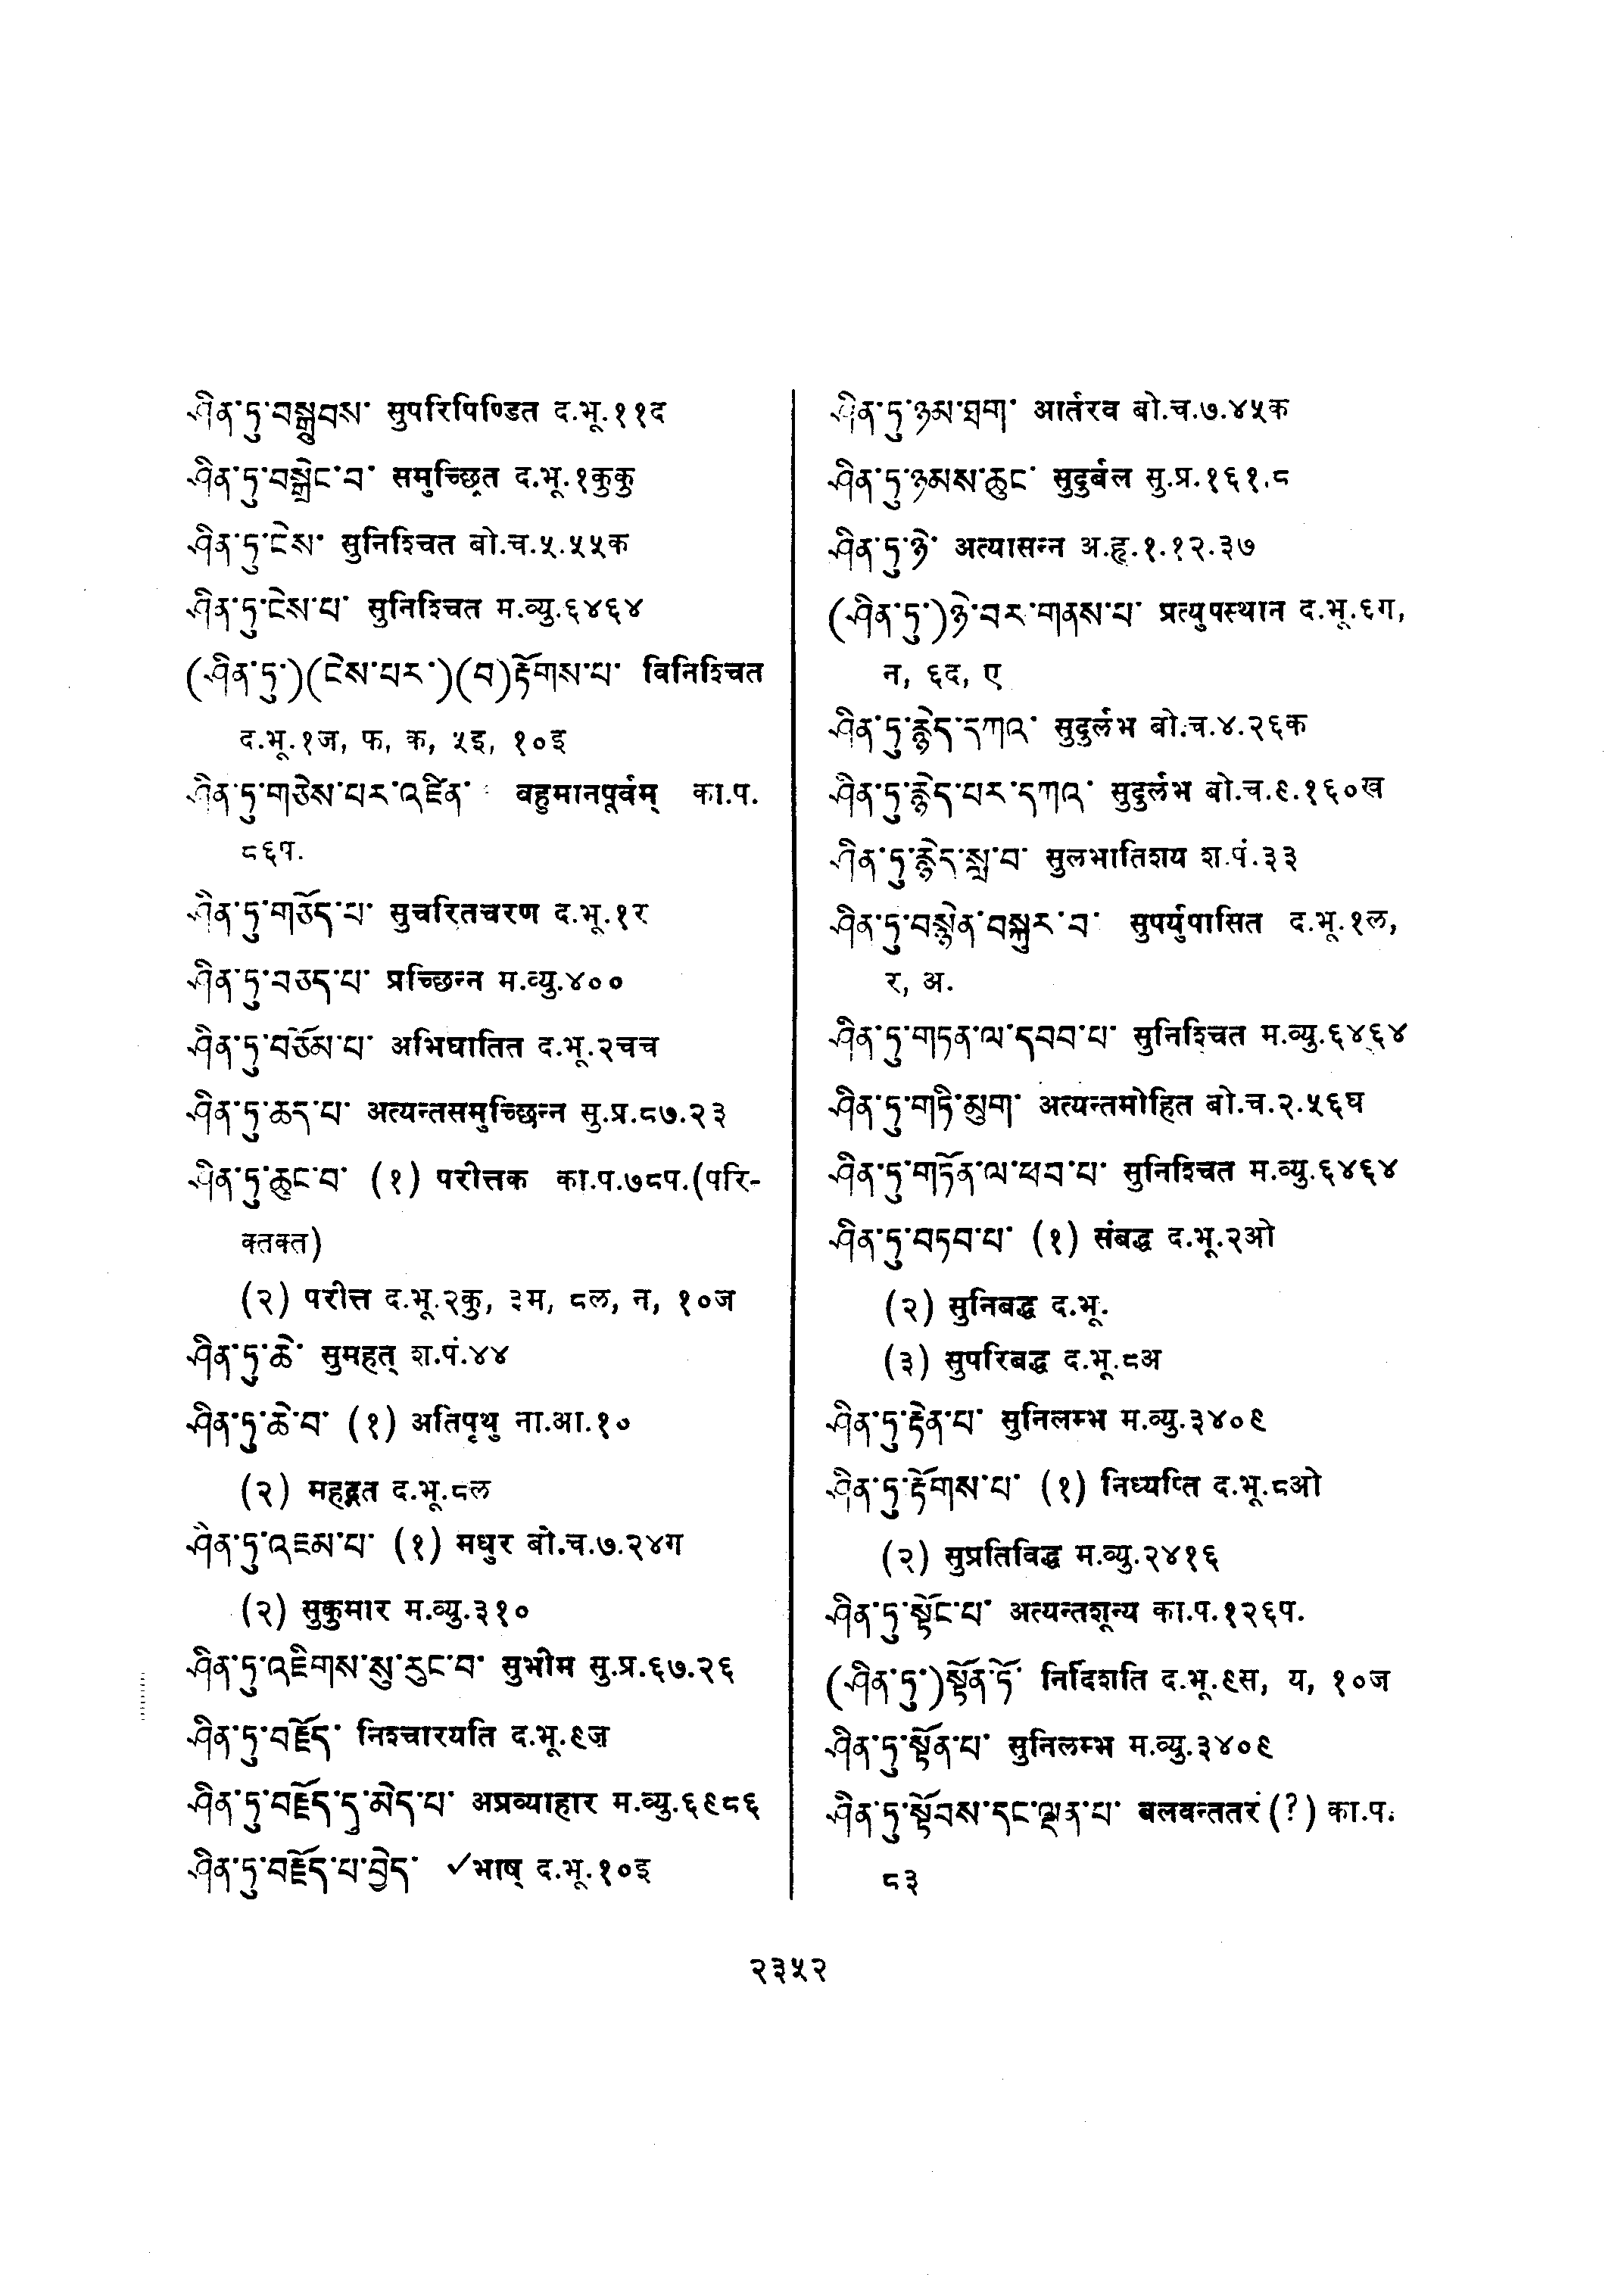 ཤིན་ཏུ་བསྒྲུབས་ सुपरिपिण्डित द.भू.११द
ཤིན་ཏུ་བསྒྲེང་བ་ समुच्छ्रित द.भू.१कुकु
ཤིན་ཏུ་ངེས་ सुनिश्चित बो.च.५.५५क
ཤིན་ཏུ་ངེས་པ་ सुनिश्चित म.व्यु.६४६४
(ཤིན་ཏུ་)(ངེས་པར་)(བ)རྟོགས་པ་ विनिश्चित
द.भू.१ज, फ, क, ५इ, १०इ
ཤིན་ཏུ་གཅེས་པར་འཛིན་ वहुमानपूर्वम् का.प.
८६प.
ཤིན་ཏུ་གཅོད་པ་ सुचरितचरण द.भू.१र
ཤིན་ཏུ་བཅད་པ་ प्रच्छिन्न म.व्यु.४००
ཤིན་ཏུ་བཅོམ་པ་ अभिघातित द.भू.२चच
ཤིན་ཏུ་ཆད་པ་ अत्यन्तसमुच्छिन्न सु.प्र.८७.२३
ཤིན་ཏུ་ཆུང་བ་ (१) परीत्तक का.प.७८प.(परि-
क्तक्त)
(२) परीत्त द.भू.२कु, ३म, ८ल, न, १०ज
ཤིན་ཏུ་ཆེ་ सुमहत् श.पं.४४
ཤིན་ཏུ་ཆེ་བ་ (१) अतिपृथु ना.आ.१०
(२) महद्गत द.भू.८ल
ཤིན་ཏུ་འཇམ་པ་ (१) मधुर बो.च.७.२४ग
(२) सुकुमार म.व्यु.३१०
ཤིན་ཏུ་འཇིགས་སུ་རུང་བ་ सुभीम सु.प्र.६७.२६
ཤིན་ཏུ་བརྗོད་ निश्चारयति द.भू.९ज
ཤིན་ཏུ་བརྗོད་དུ་མེད་པ་ अप्रव्याहार म.व्यु.६९८६
ཤིན་ཏུ་བརྗོད་པ་བྱེད་ ✓भाष् द.भू.१०इ
ཤིན་ཏུ་ཉམ་ཐག་ आर्तरव बो.च.७.४५क
ཤིན་ཏུ་ཉམས་ཆུང་ सुदुर्बल सु.प्र.१६१.८
ཤིན་ཏུ་ཉེ་ अत्यासन्न अ.हृ.१.१२.३७
(ཤིན་ཏུ་)ཉེ་བར་གནས་པ་ प्रत्युपस्थान द.भू.६ग,
न, ६द, ए
ཤིན་ཏུ་རྙེད་དཀའ་ सुदुर्लभ बो.च.४.२६क
ཤིན་ཏུ་རྙེད་པར་དཀའ་ सुदुर्लभ बो.च.९.१६०ख
ཤིན་ཏུ་རྙེད་སླ་བ་ सुलभातिशय श.पं.३३
ཤིན་ཏུ་བསྙེན་བསྐུར་བ་ सुपर्युपासित द.भू.१ल,
र, अ.
ཤིན་ཏུ་གཏན་ལ་དབབ་པ་ सुनिश्चित म.व्यु.६४६४
ཤིན་ཏུ་གཏི་མུག་ अत्यन्तमोहित बो.च.२.५६घ
ཤིན་ཏུ་གཏོན་ལ་ཕབ་པ་ सुनिश्चित म.व्यु.६४६४
ཤིན་ཏུ་བཏབ་པ་ (१) संबद्ध द.भू.२ओ
(२) सुनिबद्ध द.भू.
(३) सुपरिबद्ध द.भू.८अ
ཤིན་ཏུ་རྟེན་པ་ सुनिलम्भ म.व्यु.३४०९
ཤིན་ཏུ་རྟོགས་པ་ (१) निध्यप्ति द.भू.८ओ
(२) सुप्रतिविद्ध म.व्यु.२४१६
ཤིན་ཏུ་སྟོང་པ་ अत्यन्तशून्य का.प.१२६प.
(ཤིན་ཏུ་)སྟོན་ཏོ་ निर्दिशति द.भू.९स, य, १०ज
ཤིན་ཏུ་སྟོན་པ་ सुनिलम्भ म.व्यु.३४०९
ཤིན་ཏུ་སྟོབས་དང་ལྡན་པ་ बलवन्ततरं(?) का.प.
८३
२३५२